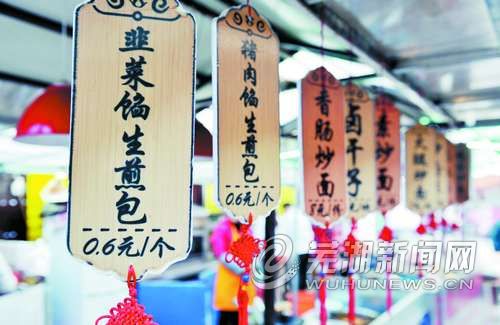 韭菜馅生煎包
0.6元/个
猪肉馅生煎包
0.6元/个
香肠炒面
卤干子
素炒面
芜湖新闻网
WUHUNEWS.CN